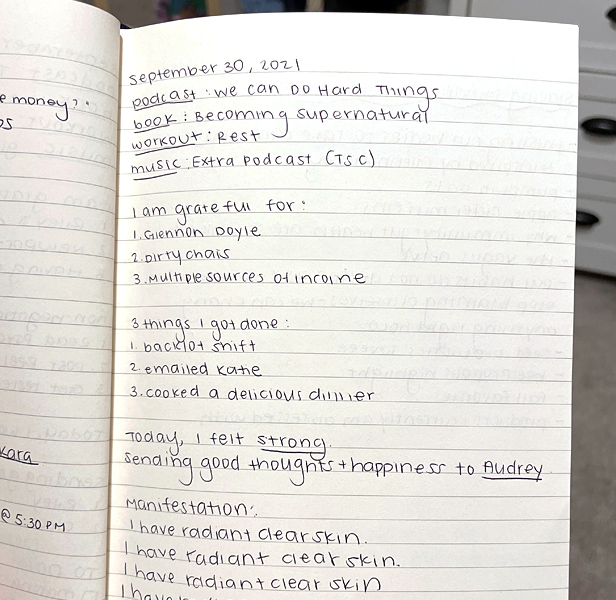 e money?
os
Kara
@ 5:30 PM
September 30, 2021
podcast: We can Do Hard Things
book: Becoming supernatural
workout: Rest
music: Extra podcast (TSC)
I am grateful for:
1. Glennon Doyle
2. Dirty chais
3. Multiple sources of income
3 things I got done:
1. backlot shift
2. emailed Katie
3. cooked a delicious dinner
Today, I felt strong.
Sending good thoughts + happiness to Audrey
Manifestation:
I have radiant clear skin.
I have radiant clear skin.
I have radiant clear skin
I have